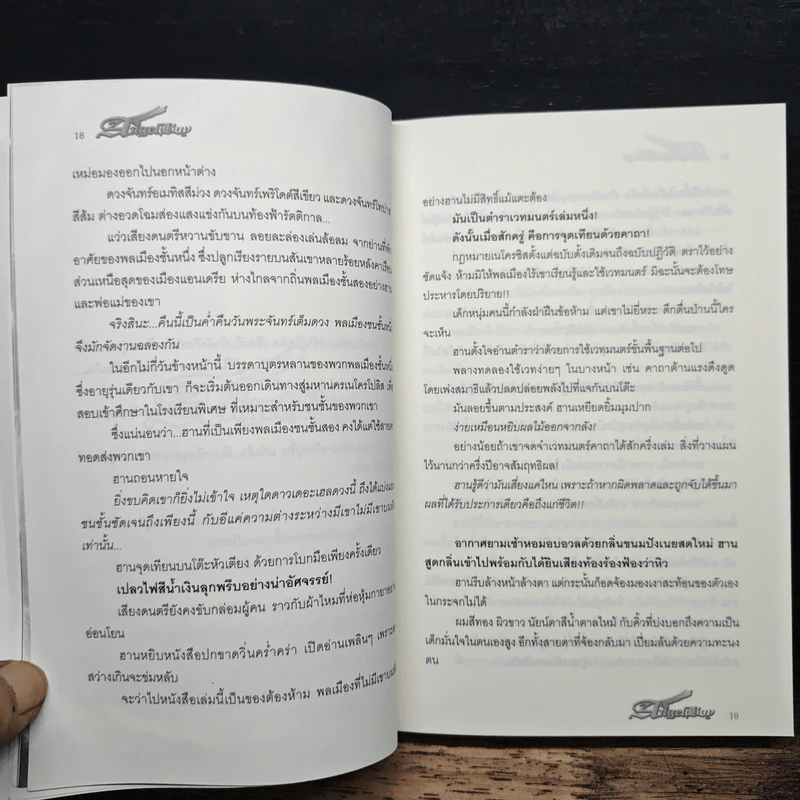 18
เหม่อมองออกไปนอกหน้าต่าง
ดวงจันทร์อเมทิสสีม่วง ดวงจันทร์เพริโดต์สีเขียว และดวงจันทร์โทปาซ
สีส้ม ต่างอวดโฉมส่องแสงแข่งกันบนท้องฟ้ารัตติกาล...
แว่วเสียงดนตรีหวานขับขาน ลอยละล่องเล่นล้อลม จากย่านที่พัก
อาศัยของพลเมืองชั้นหนึ่ง ซึ่งปลูกเรียงรายบนสันเขาหลายร้อยหลังคาเรือน
ส่วนเหนือสุดของเมืองแอนเดรีย ห่างไกลจากถิ่นพลเมืองชั้นสองอย่างฮาน
และพ่อแม่ของเขา
จริงสินะ...คืนนี้เป็นค่ำคืนวันพระจันทร์เต็มดวง พลเมืองชนชั้นหนึ่ง
จึงมักจัดงานฉลองกัน
ในอีกไม่กี่วันข้างหน้านี้ บรรดาบุตรหลานของพวกพลเมืองชั้นหนึ่ง
ซึ่งอายุรุ่นเดียวกับเขา ก็จะเริ่มต้นออกเดินทางสู่มหานครเนโครโปลิส เพื่อ
สอบเข้าศึกษาในโรงเรียนพิเศษ ที่เหมาะสำหรับชนชั้นของพวกเขา
ซึ่งแน่นอนว่า...ฮานที่เป็นเพียงพลเมืองชนชั้นสอง คงได้แต่ใช้สายตา
ทอดส่งพวกเขา
ฮานถอนหายใจ
ยิ่งขบคิดเขาก็ยิ่งไม่เข้าใจ เหตุใดดาวเดอะเฮลดวงนี้ ถึงได้แบ่งแยก
ชนชั้นชัดเจนถึงเพียงนี้ กับอีแค่ความต่างระหว่างมีเขาไม่มีเขาบนหัว
เท่านั้น...
ฮานจุดเทียนบนโต๊ะหัวเตียง ด้วยการโบกมือเพียงครั้งเดียว
เปลวไฟสีน้ำเงินลุกพรึบอย่างน่าอัศจรรย์!
เสียงดนตรียังคงขับกล่อมผู้คน ราวกับผ้าไหมที่ห่อหุ้มกายาอย่าง
อ่อนโยน
ฮานหยิบหนังสือปกขาดวิ่นคร่ำคร่า เปิดอ่านเพลินๆ เพราะ
สว่างเกินจะข่มหลับ
จะว่าไปหนังสือเล่มนี้เป็นของต้องห้าม พลเมืองที่ไม่มีเขาบน
อย่างฮานไม่มีสิทธิ์แม้แตะต้อง
มันเป็นตำราเวทมนตร์เล่มหนึ่ง!
ดังนั้นเมื่อสักครู่ คือการจุดเทียนด้วยคาถา!
กฎหมายเนโครซิสตั้งแต่ฉบับดั้งเดิมจนถึงฉบับปฏิวัติ ตราไว้อย่าง
ชัดแจ้ง ห้ามมิให้พลเมืองไร้เขาเรียนรู้และใช้เวทมนตร์ มิฉะนั้นจะต้องโทษ
ประหารโดยปริยาย!!
เด็กหนุ่มคนนี้กำลังฝ่าฝืนข้อห้าม แต่เขาไม่ยี่หระ ดึกดื่นป่านนี้ใคร
จะเห็น
ฮานตั้งใจอ่านตำราว่าด้วยการใช้เวทมนตร์ชั้นพื้นฐานต่อไป
พลางทดลองใช้เวทง่ายๆ ในบางหน้า เช่น คาถาต้านแรงดึงดูด
โดยเพ่งสมาธิแล้วปลดปล่อยพลังไปที่แจกันบนโต๊ะ
มันลอยขึ้นตามประสงค์ ฮานเหยียดยิ้มมุมปาก
ง่ายเหมือนหยิบผลไม้ออกจากลัง!
อย่างน้อยถ้าเขาจดจำเวทมนตร์คาถาได้สักครึ่งเล่ม สิ่งที่วางแผน
ไว้นานกว่าครึ่งปีอาจสัมฤทธิผล!
ฮานรู้ดีว่ามันเสี่ยงแค่ไหน เพราะถ้าหากผิดพลาดและถูกจับได้ขึ้นมา
ผลที่ได้รับประการเดียวคือถึงแก่ชีวิต!!
อากาศยามเช้าหอมอบอวลด้วยกลิ่นขนมปังเนยสดใหม่ ฮาน
สูดกลิ่นเข้าไปพร้อมกับได้ยินเสียงท้องร้องฟ้องว่าหิว
ฮานรีบล้างหน้าล้างตา แต่กระนั้นก็อดจ้องมองเงาสะท้อนของตัวเอง
ในกระจกไม่ได้
ผมสีทอง ผิวขาว นัยน์ตาสีน้ำตาลไหม้ กับคิ้วที่บ่งบอกถึงความเป็น
เด็กมั่นใจในตนเองสูง อีกทั้งสายตาที่จ้องกลับมา เปี่ยมล้นด้วยความทะนง
ตน
19